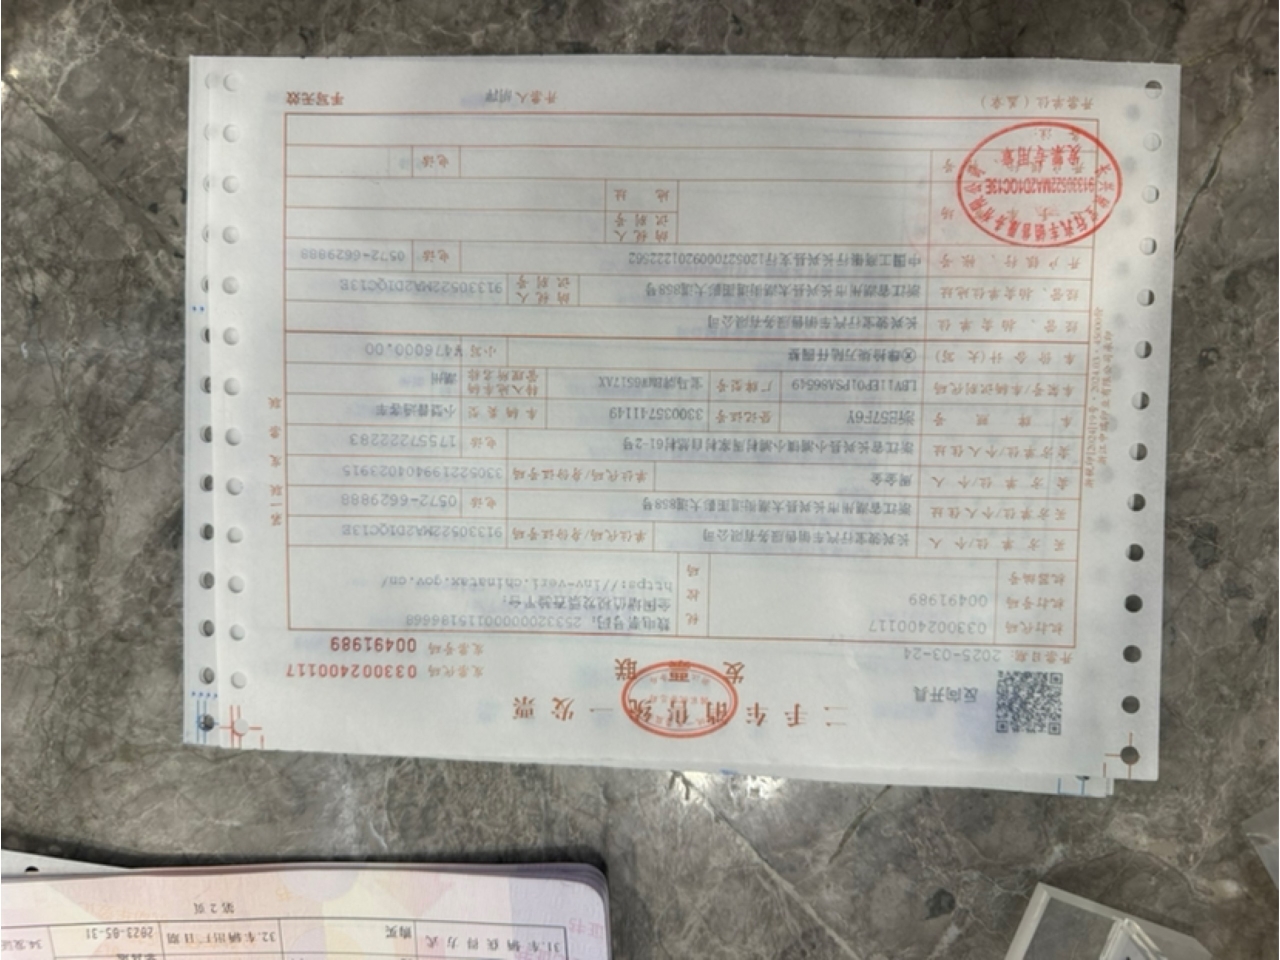 二手车销售统一发票
发票联
反向开具
开票日期: 2025-03-24
发票代码 033002400117
发票号码 00491989
机打代码 033002400117
机打号码 00491989
机器编号
税控码
数电票号码: 25332000000115198668
全国增值税发票查验平台:
https://inv-veri.chinatax.gov.cn/
买方单位/个人 长兴骏宏行汽车销售服务有限公司 单位代码/身份证号码 91330522MA2D1QC13E
买方单位/个人住址 浙江省湖州市长兴县太湖街道画溪大道858号 电话 0572-6629888
卖方单位/个人 单位代码/身份证号码 330522199404023915
卖方单位/个人住址 浙江省长兴县小浦镇小浦村周家村自然村61-2号 电话 17557222283
车牌照号 浙E57F6Y 登记证号 330035741149 车辆类型 小型普通客车
车架号/车辆识别代码 LBV11EF01PSA86549 厂牌型号 宝马牌BMW6517AX 转入地车辆管理所名称 湖州
车价合计(大写) ⓧ肆拾柒万陆仟圆整 小写 ¥476000.00
经营、拍卖单位 长兴骏宏行汽车销售服务有限公司
经营、拍卖单位地址 浙江省湖州市长兴县太湖街道画溪大道858号 纳税人识别号 91330522MA2D1QC13E
开户银行、账号 中国工商银行长兴县支行1205270009201222562 电话 0572-6629888
二手车市场 纳税人识别号
地址
开户银行、账号 电话
备注:
开票单位(盖章) 开票人 手写无效
第一联 发票联
91330522MA2D1QC13E
发票专用章
第 2 页
31.车辆获得方式 购买 32.车辆出厂日期 2023-05-31 34.发证